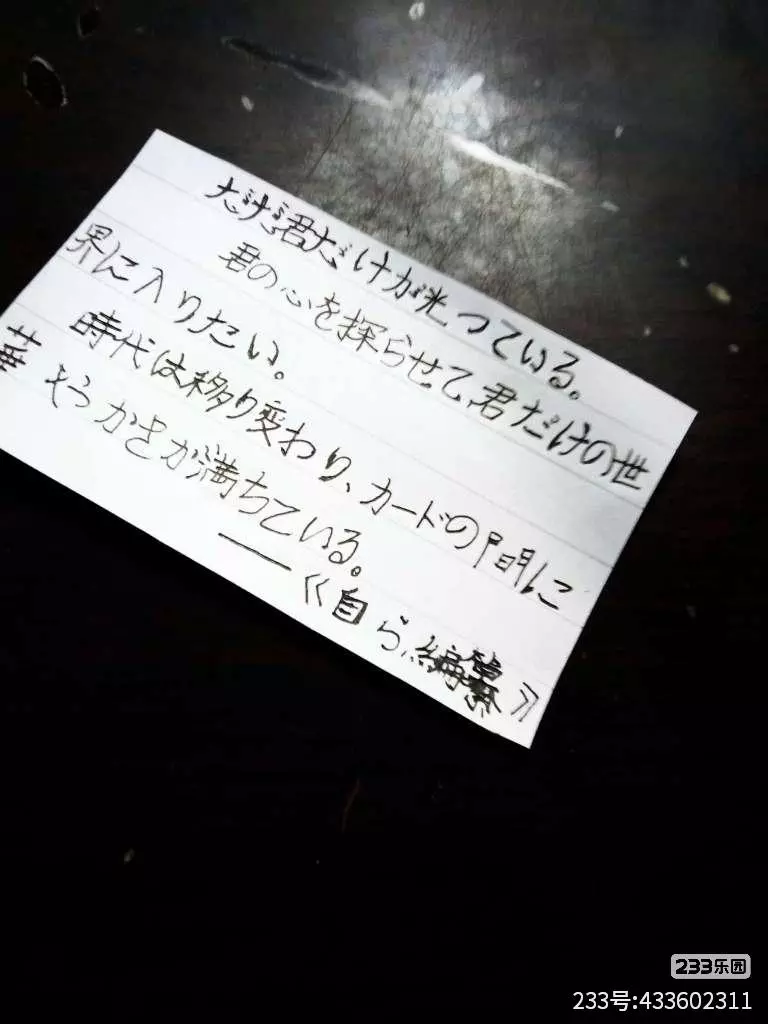 ただ君だけが光っている。
君の心を探らせて君だけの世
界に入りたい。
時代は移り変わり、カードの間に
華やかさが満ちている。
——《自ら編纂》
233乐园
233号:433602311